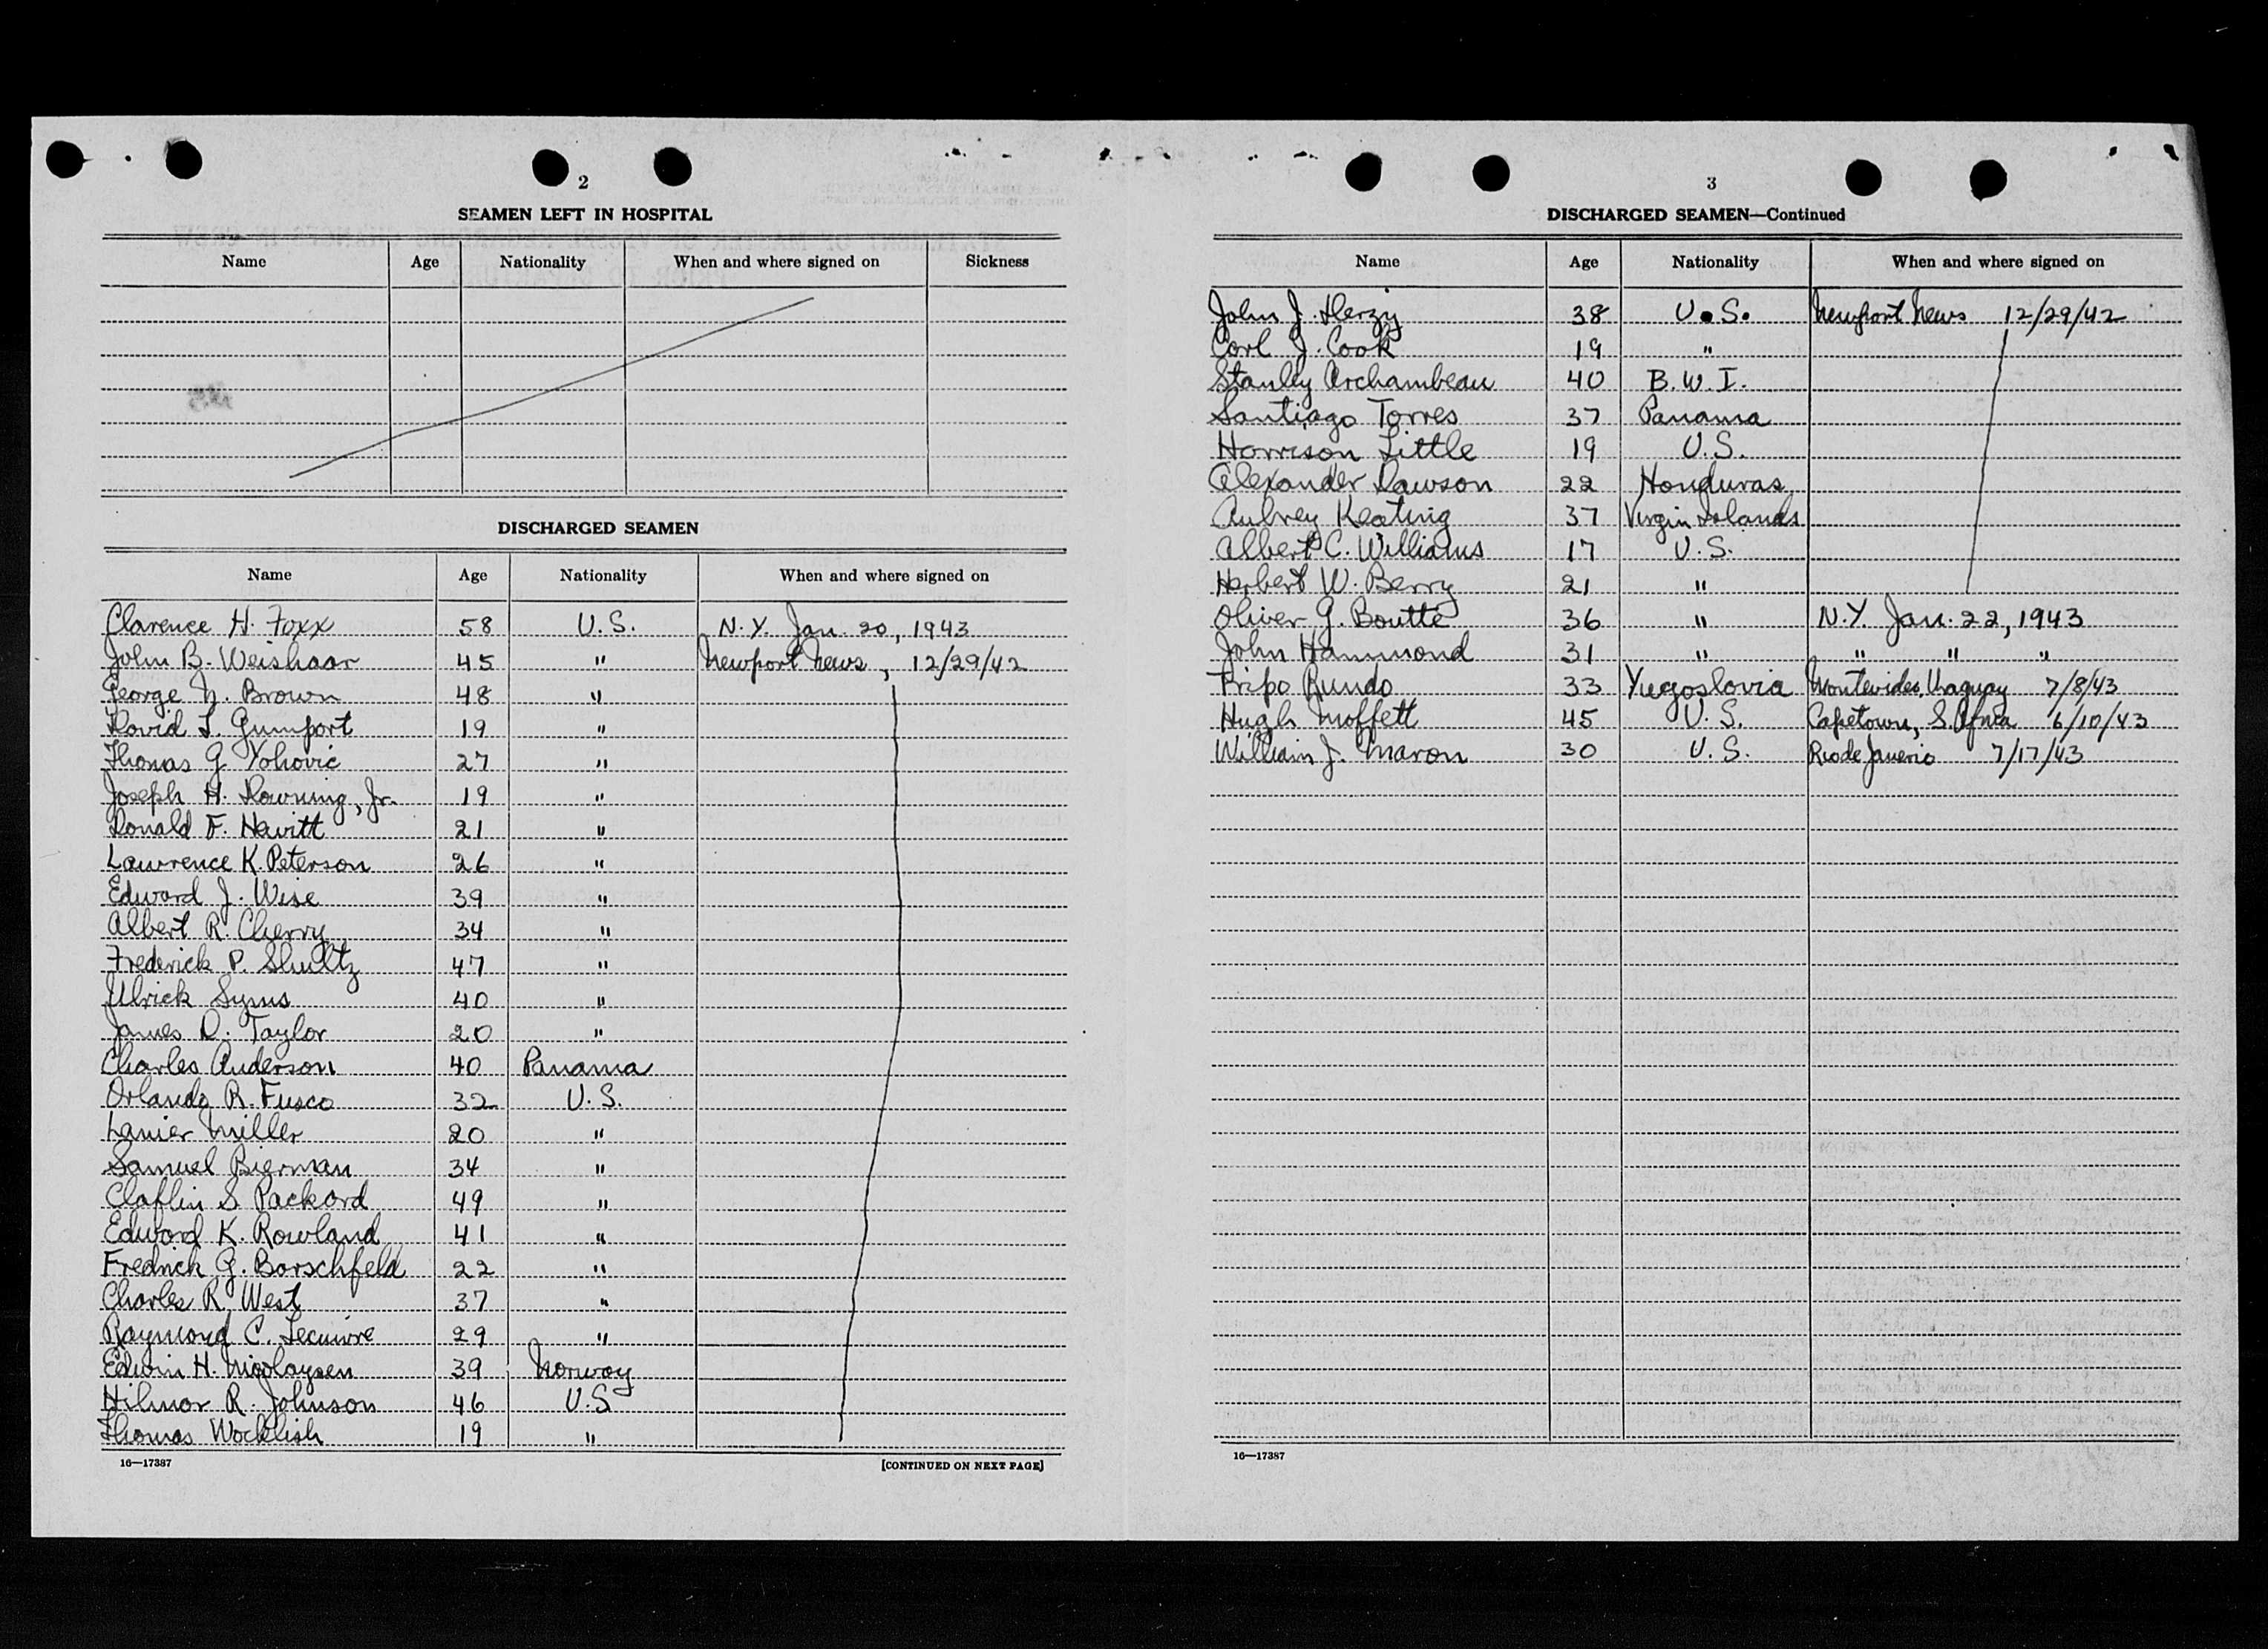 2
SEAMEN LEFT IN HOSPITAL
Name Age Nationality When and where signed on Sickness
DISCHARGED SEAMEN
Name Age Nationality When and where signed on
Clarence H. Foxx 58 U.S. N.Y. Jan. 20, 1943
John B. Weishaar 45 " Newport News, 12/29/42
George N. Brown 48 "
David L. Gumport 19 "
Thomas G. Vohovic 27 "
Joseph H. Downing, Jr. 19 "
Donald F. Hewitt 21 "
Lawrence K. Peterson 26 "
Edward J. Wise 39 "
Albert R. Cherry 34 "
Frederick P. Shultz 47 "
Ulrick Syms 40 "
James D. Taylor 20 "
Charles Anderson 40 Panama
Orlando R. Fusco 32 U.S.
Lanier Miller 20 "
Samuel Bierman 34 "
Claflin S. Packard 49 "
Edward K. Rowland 41 "
Fredrick G. Borschfeld 22 "
Charles R. West 37 "
Raymond C. 29 "
Edwin H. Nicolaysen 39 Norway
Hilmor R. Johnson 46 U.S
Thomas 19 "
16—17387 [CONTINUED ON NEXT PAGE]
3
DISCHARGED SEAMEN—Continued
Name Age Nationality When and where signed on
John J. Herzig 38 U.S. Newport News 12/29/42
Carl J. Cook 19 "
Stanley Archambeau 40 B.W.I.
Santiago Torres 37 Panama
Harrison Little 19 U.S.
Alexander Dawson 22 Honduras
Aubrey Keating 37 Virgin Islands
Albert C. Williams 17 U.S.
Herbert W. Berry 21 "
Oliver G. Boutte 36 " N.Y. Jan. 22, 1943
John Hammond 31 " " " "
Pripo Rundo 33 Yugoslovia Montevideo, Uraguay 7/8/43
Hugh Moffett 45 U.S. Capetown, S. Africa 6/10/43
William J. Maron 30 U.S. Rio de Janerio 7/17/43
16—17387